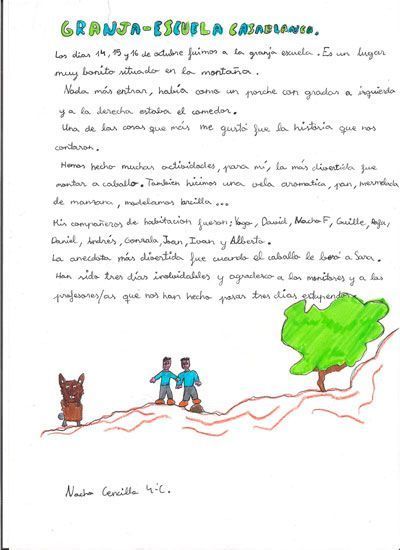 GRANJA-ESCUELA CASABLANCA.
Los días 14, 15 y 16 de octubre fuimos a la granja escuela. Es un lugar
muy bonito situado en la montaña.
Nada más entrar, había como un porche con gradas a izquierda
y a la derecha estaba el comedor.
Una de las cosas que más me gustó fue la historia que nos
contaron.
Hemos hecho muchas actividades, para mí, la más divertida fue
montar a caballo. También hicimos una vela aromatica, pan, mermelada
de manzana, modelamos arcilla...
Mis compañeros de habitacion fueron: Yago, David, Nacho F, Guille, Rafa,
Daniel, Andrés, Gonzalo, Joan, Ivan y Alberto.
La anecdota más divertida fue cuando el caballo le besó a Sara.
Han sido tres días inolvidables y agradezco a los monitores y a las
profesores/as que nos han hecho pasar tres días estupendos.
Nacho Cencilla 4ºC.